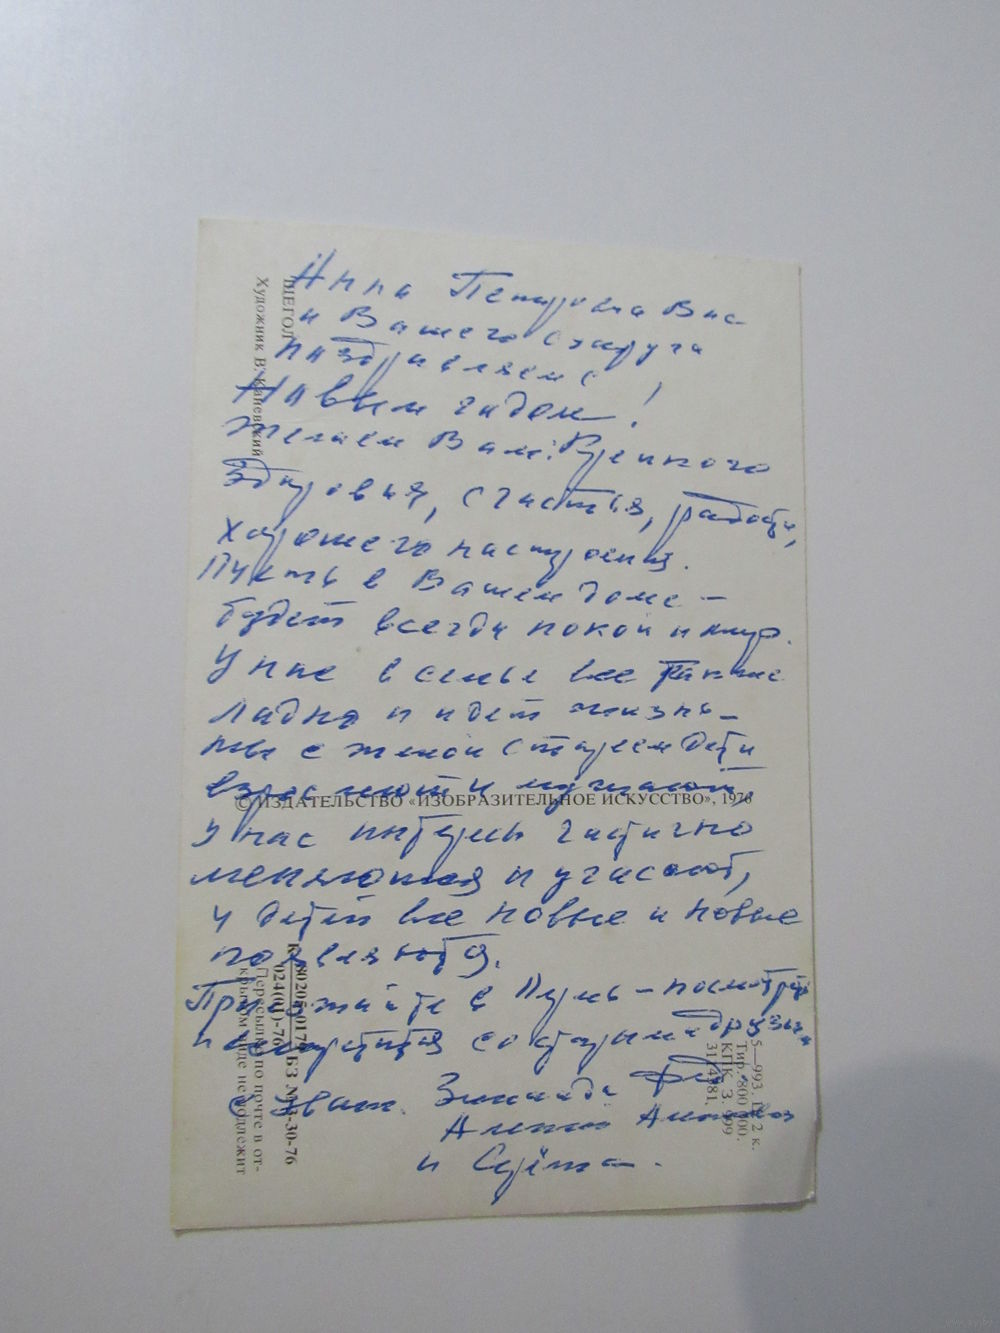 Анна Петровна Вас
и Вашего супруга
поздравляем с
Новым годом!
Желаем Вам: Крепкого
здоровья, счастья, радости,
хорошего настроения.
Пусть в Вашем доме –
будет всегда покой и мир.
У нас в семье все также
ладно и идет жизнь –
мы с женой стареем дети
взрослеют и мужают.
У нас интересы частично
меняются и угасают,
у детей все новые и новые
появляются.
Приезжайте в – посмотреть
встретится со старыми друзьями
С уваж. Зинаида
Алексей
и Серёжа.
ЩЕГОЛ
Художник В. Каневский
© ИЗДАТЕЛЬСТВО «ИЗОБРАЗИТЕЛЬНОЕ ИСКУССТВО», 1976
80205-017
024(01)-76 БЗ 30-76
Пересылке по почте в от-
крытом виде не подлежит
5—993 2 к.
Тир. 800 000.
КПК. З. 999